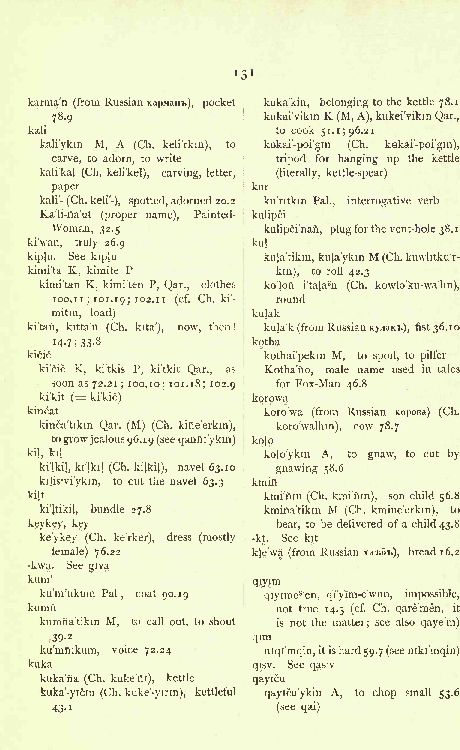 131
karma'n (from Russian карманъ), pocket
78.9
kali
kali'ykın M, A (Ch. keli'rkın), to
carve, to adorn, to write
kali'kal (Ch. keli'kel), carving, letter,
paper
kali'- (Ch. keli'-), spotted, adorned 20.2
Ka'li-ña'ut (proper name), Painted-
Woman, 32.5
ki'wan, truly 26.9
kıplu. See kıplu
kimi'ta K, kimite P
kimi'tan K, kimi'ten P, Qar., clothes
100.11; 101.19; 102.11 (cf. Ch. ki'-
mitın, load)
ki'tañ, kıtta'ñ (Ch. kıta'), now, then!
14.7; 33.8
kičič
ki'čič K, ki'tkis P, ki'tkit Qar., as
soon as 72.21; 100.10; 101.18; 102.9
ki'kit (= ki'kič)
kinčat
kinča'tıkın Qar. (M) (Ch. kiñe'erkın),
to grow jealous 96.19 (see qanñı'ykın)
kil, kıl
ki'lkil, kı'lkıl (Ch. kılkıl), navel 63.10
kılısvi'ykın, to cut the navel 63.3
kilt
ki'ltikil, bundle 27.8
keykey, key
ke'ykey (Ch. ke'rker), dress (mostly
female) 76.22
-kwa. See gıva
kum'
ku'm'ukum Pal., coat 90.19
kumñ
kumña'tıkın M, to call out, to shout
39.2
ku'mñıkum, voice 72.24
kuka
kuka'ña (Ch. kuke'ñı), kettle
kuka'-yıčın (Ch. kuke'-yırın), kettleful
43.1
kuka'kin, belonging to the kettle 78.1
kukai'vikın K (M, A), kukei'vikın Qar.,
to cook 51.1; 96.21
kokai-poi'gın (Ch. kukai-poi'gın),
tripod for hanging up the kettle
(literally, kettle-spear)
kur
ku'rıtkın Pal., interrogative verb
kulipči
kulipči'nañ, plug for the vent-hole 38.1
kul
kula'tikın, kula'ykın M (Ch. kuwlıtku'r-
kın), to roll 42.3
ko'loñ i'talaᵋn (Ch. kowlo'ku-wa'lın),
round
kulak
kula'k (from Russian кулакъ), fist 36.10
kotha
kothai'pekın M, to spoil, to pilfer
Kotha'ño, male name used in tales
for Fox-Man 46.8
korowa
koro'wa (from Russian корова) (Ch.
koro'walhın), cow 78.7
kolo
kolo'ykın A, to gnaw, to cut by
gnawing 58.6
kmiñ
kmi'ñın (Ch. kmi'ñın), son child 56.8
kmiña'tikın M (Ch. kmiñe'erkın), to
bear, to be delivered of a child 43.8
-kt. See kıt
kle'wa (from Russian хлѣбъ), bread 16.2
qiyım
qiyımeᵋen, qi'yım-e'wun, impossible,
not true 14.3 (cf. Ch. qarê'mên, it
is not the matter; see also qaye'm)
qın
nıqı'mqin, it is hard 59.7 (see ntkı'mqin)
qısv. See qasıv
qaytču
qaytču'ykın A, to chop small 53.6
(see qai)